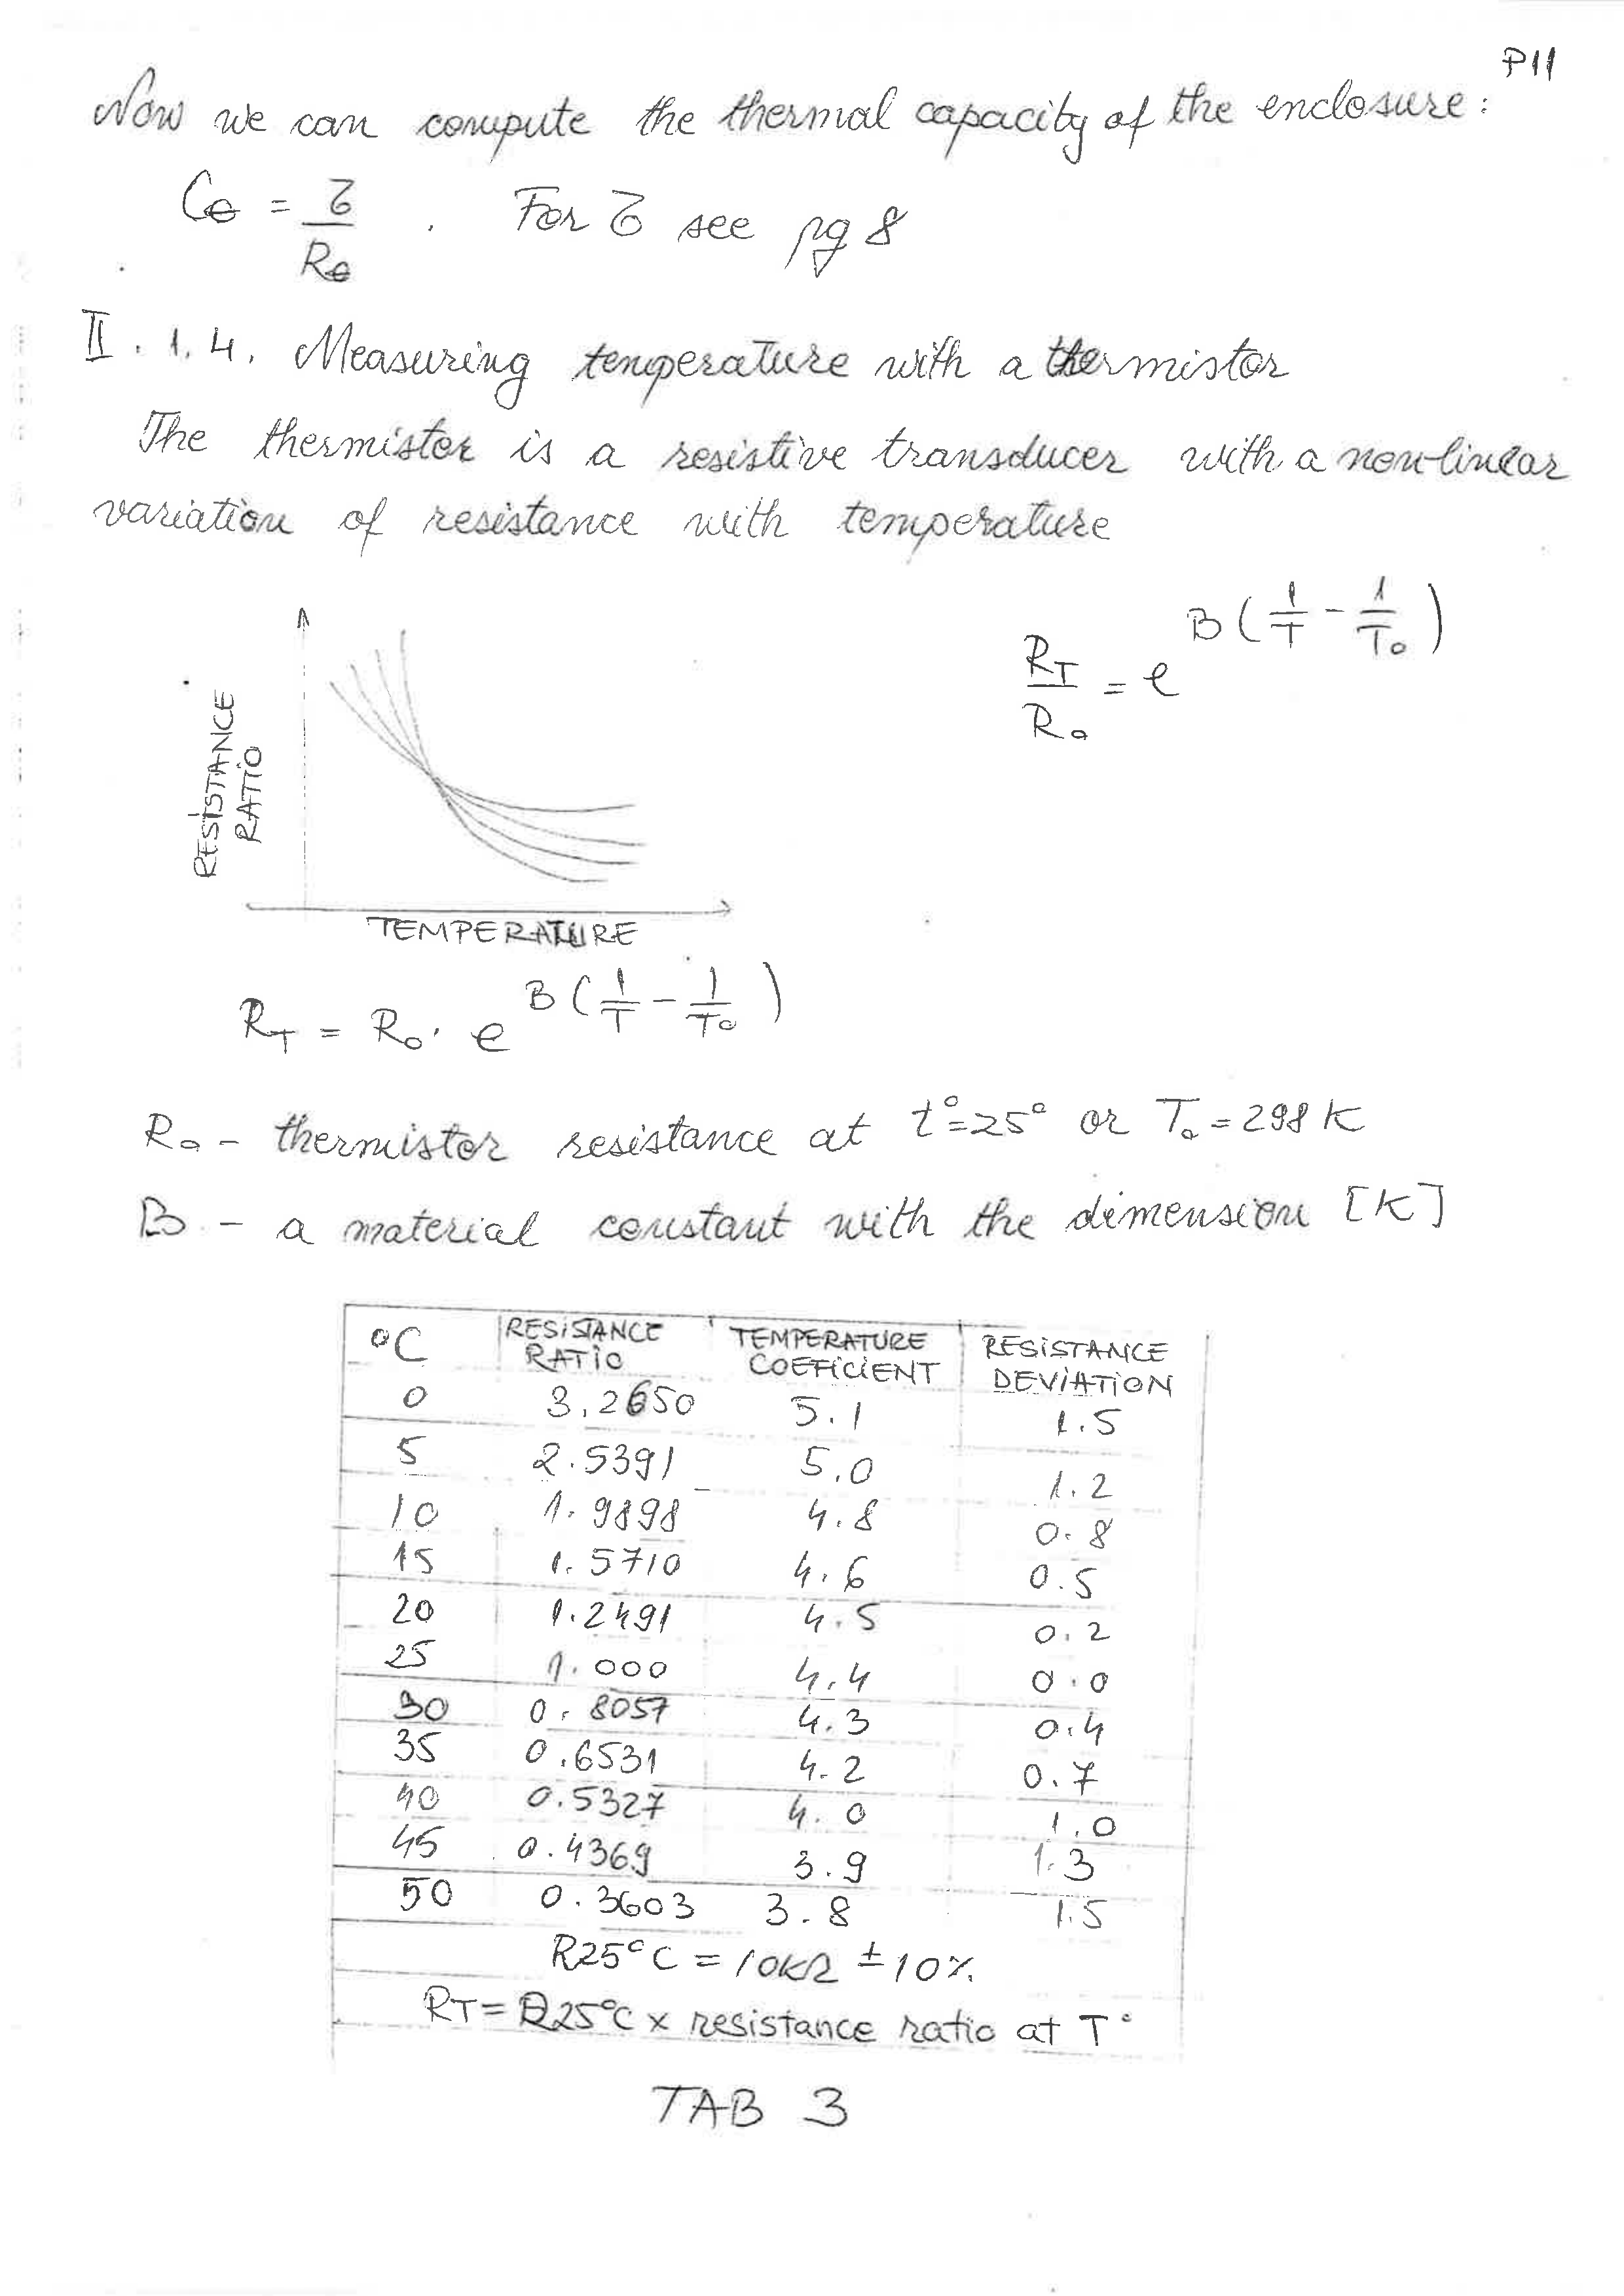 P11
Now we can compute the thermal capacity of the enclosure:
Cθ = τ / Rθ . For τ see pg 8
II. 1. 4. Measuring temperature with a thermistor
The thermistor is a resistive transducer with a non-linear
variation of resistance with temperature
RT / R0 = e^B(1/T - 1/T0)
RESISTANCE
RATIO
TEMPERATURE
RT = R0 · e^B(1/T - 1/T0)
R0 - thermistor resistance at t°=25° or T0 = 298 K
B - a material constant with the dimension [K]
°C RESISTANCE RATIO TEMPERATURE COEFICIENT RESISTANCE DEVIATION
0 3.2650 5.1 1.5
5 2.5391 5.0 1.2
10 1.9898 4.8 0.8
15 1.5710 4.6 0.5
20 1.2491 4.5 0.2
25 1.000 4.4 0.0
30 0.8057 4.3 0.4
35 0.6531 4.2 0.7
40 0.5327 4.0 1.0
45 0.4369 3.9 1.3
50 0.3603 3.8 1.5
R25°C = 10kΩ ±10%
RT = R25°C x resistance ratio at T°
TAB 3